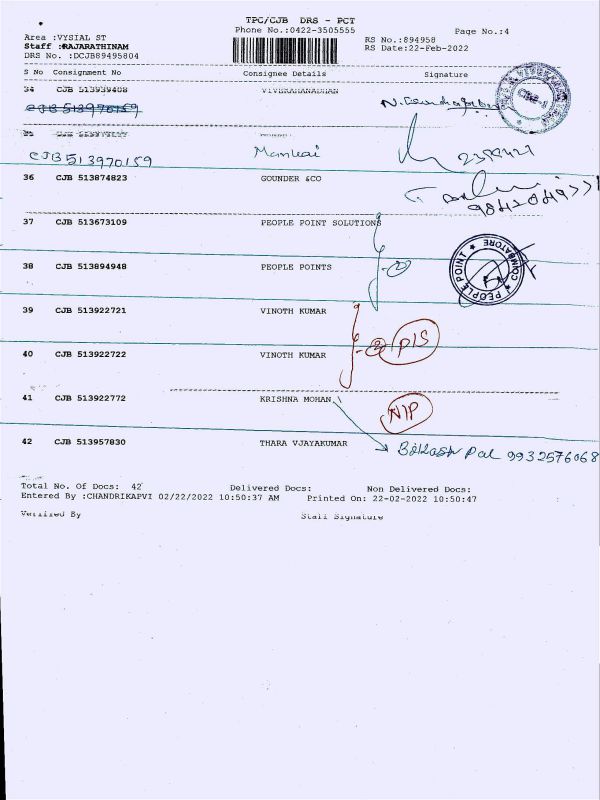 TPC/CJB DRS - PCT
Phone No.:0422-3505555
Page No.:4
Area :VYSIAL ST
RS No.:894958
Staff :RAJARATHINAM
RS Date:22-Feb-2022
DRS No. :DCJB89495804
S No Consignment No Consignee Details Signature
34 CJB 513939408
CJB 513970159
CJB 513970159
36 CJB 513874823 GOUNDER &CO
37 CJB 513673109 PEOPLE POINT SOLUTIONS
38 CJB 513894948 PEOPLE POINTS
PEOPLE POINT COIMBATORE
39 CJB 513922721 VINOTH KUMAR
40 CJB 513922722 VINOTH KUMAR
41 CJB 513922772 KRISHNA MOHAN
42 CJB 513957830 THARA VJAYAKUMAR
Pal 9932576068
Total No. Of Docs: 42 Delivered Docs: Non Delivered Docs:
Entered By :CHANDRIKAPVI 02/22/2022 10:50:37 AM Printed On: 22-02-2022 10:50:47
Verified By Staff Signature